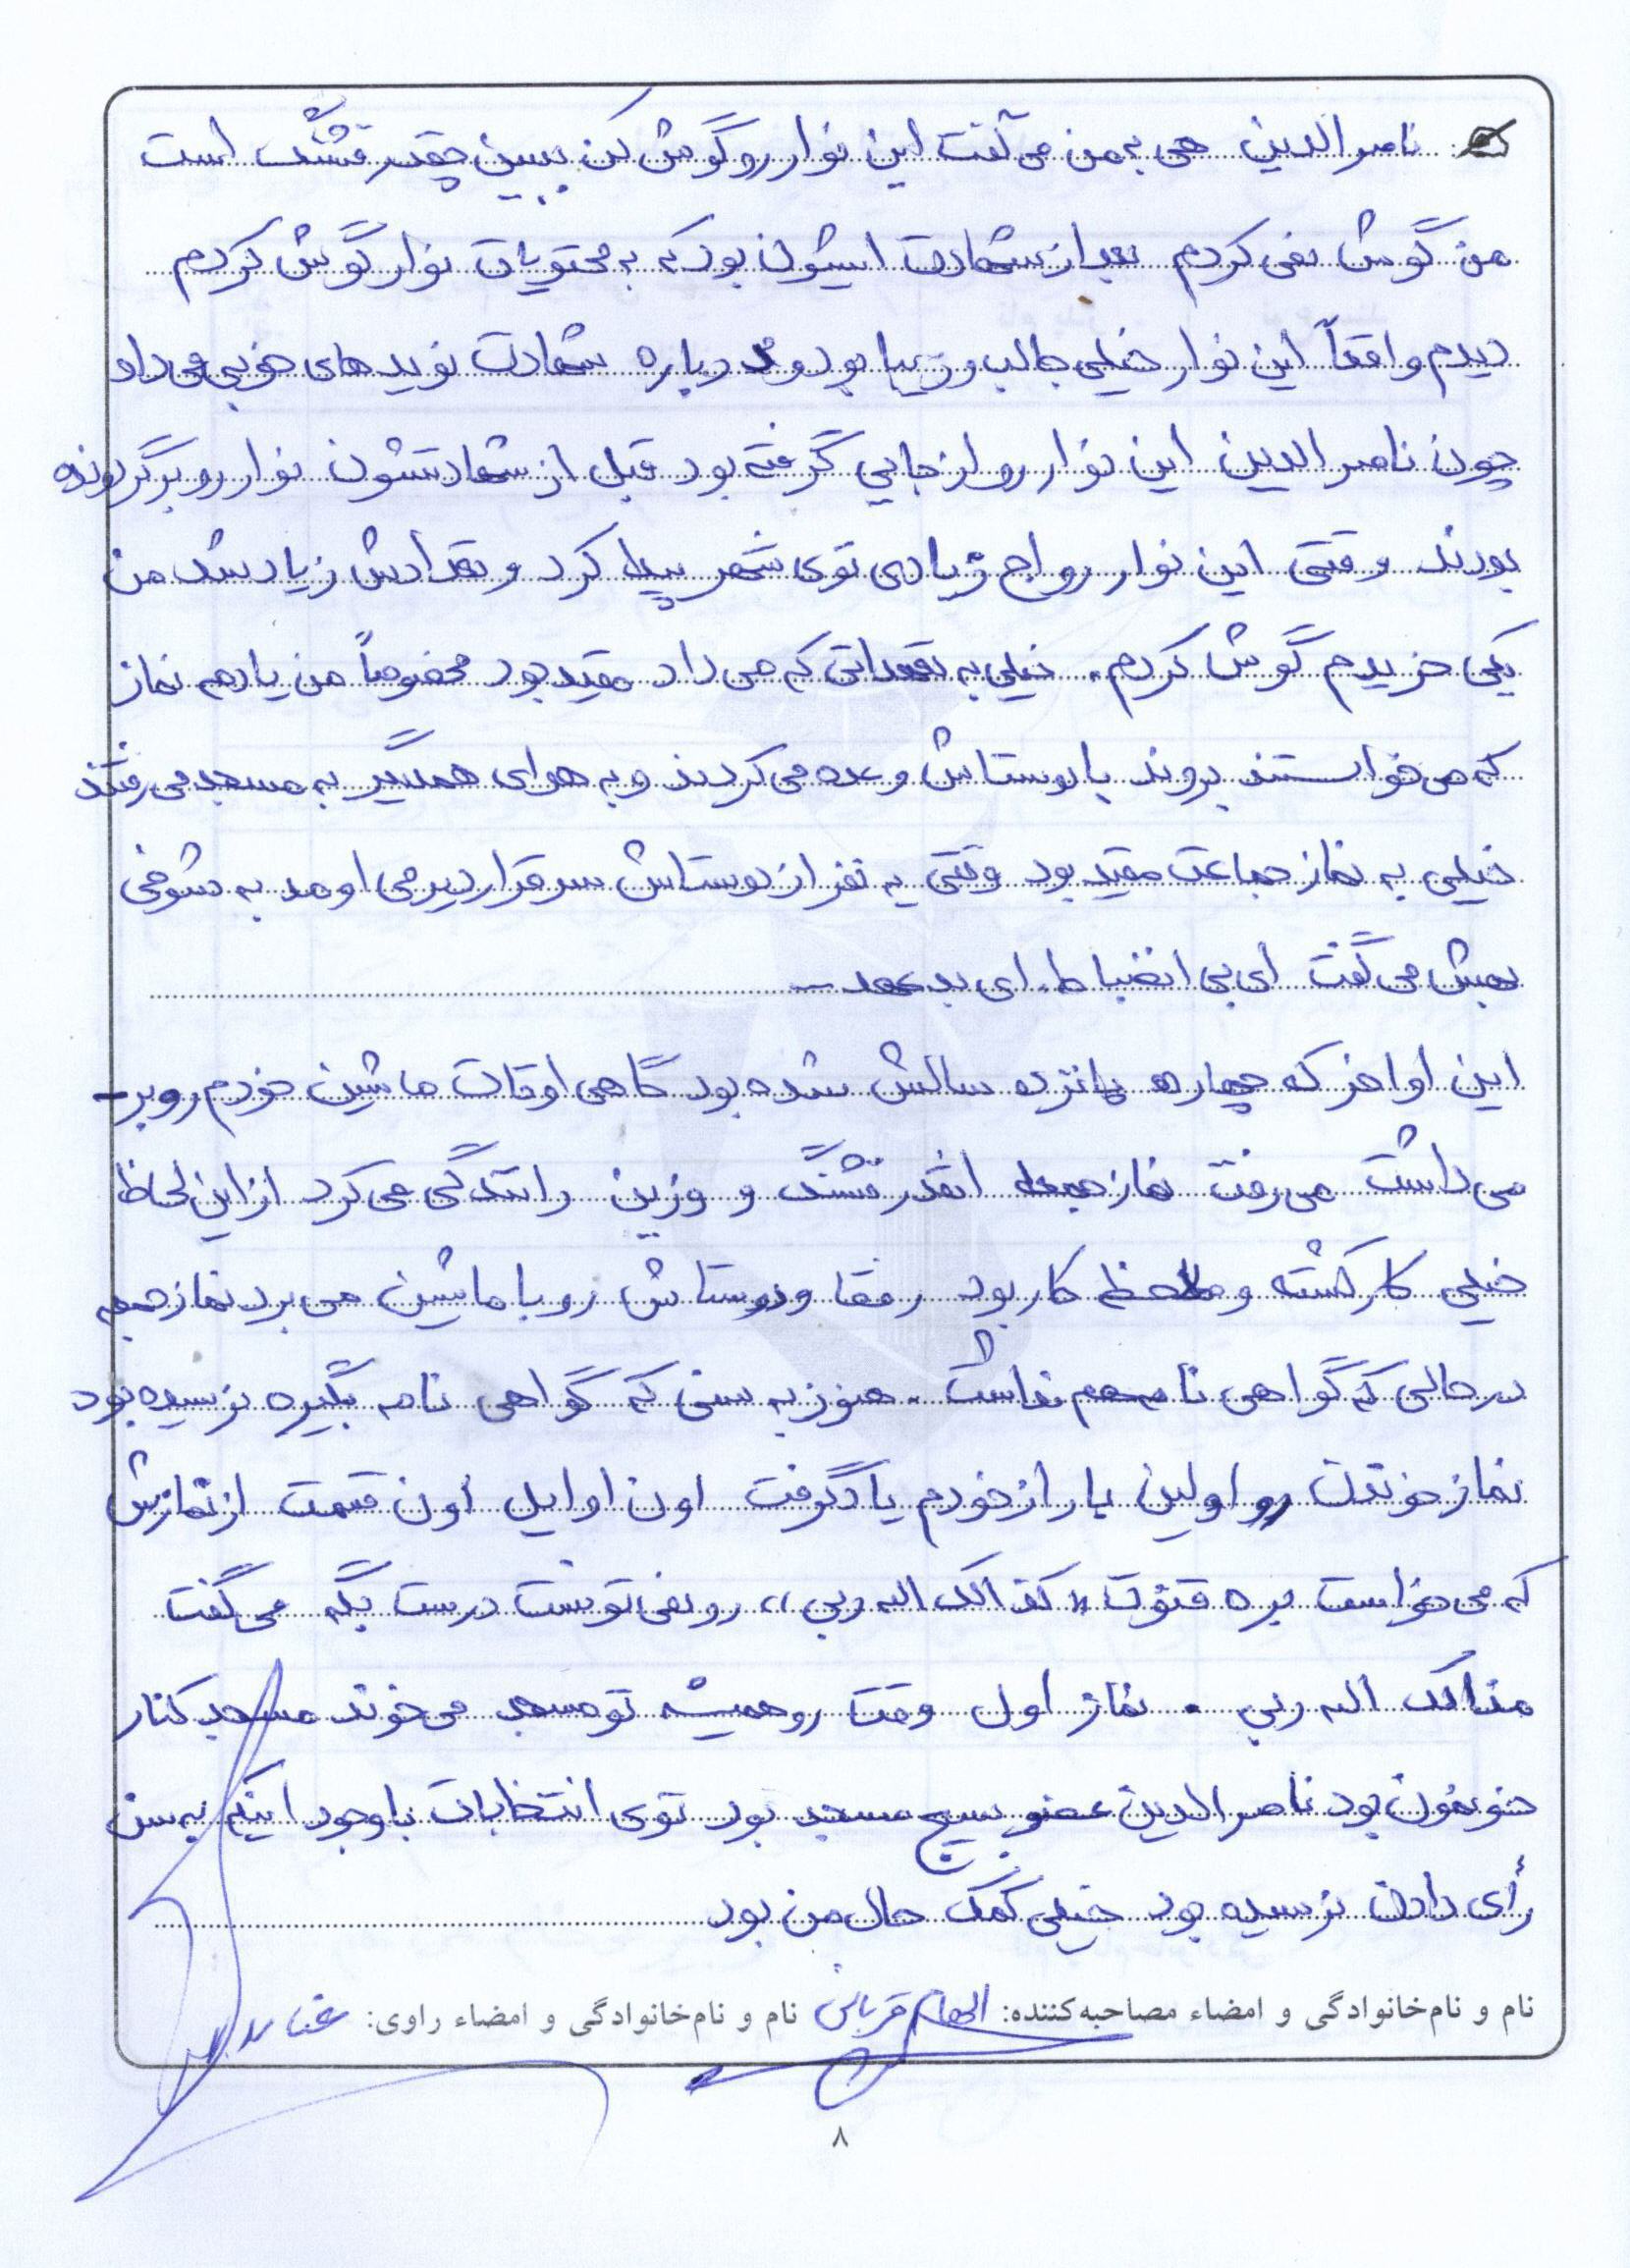 ناصرالدین هی به من می گفت این نوار رو گوش کن ببین چقدر قشنگ است
من گوش نمی کردم بعد از شهادت ایشون بود که به محتویات نوار گوش کردم
دیدم واقعاً این نوار خیلی جالب و زیبا بود و درباره شهادت نوید های خوبی می داد
چون ناصرالدین این نوار رو از جایی گرفته بود قبل از شهادتشون نوار رو برگردونده
بودند وقتی این نوار رواج زیادی توی شهر پیدا کرد و تعدادش زیاد شد من
یکی خریدم گوش کردم. خیلی به تعهداتی که می داد مقید بود مخصوصاً من یادمه نماز
که می خواستند بروند با دوستاش وعده می کردند و به هوای همدیگر به مسجد می رفتند
خیلی به نماز جماعت مقید بود وقتی یه نفر از دوستاش سر قرار دیر می اومد به شوخی
بهش می گفت ای بی انضباط. ای بد عهد
این اواخر که چهارده پانزده سالش شده بود گاهی اوقات ماشین خودم رو بر-
می داشت می رفت نماز جمعه انقدر قشنگ و وزین رانندگی می کرد از این لحاظ
خیلی کار کشته و ملاحظه کار بود رفقا و دوستاش رو با ماشین می برد نماز جمعه
در حالی که گواهی نامه هم نداشت. هنوز به سنی که گواهی نامه بگیره نرسیده بود
نماز خوندن رو اولین بار از خودم یاد گرفت اون اوایل اون قسمت از نمازش
که می خواست بره قنوت «کذالک اله ربی» رو نمی تونست درست بگه می گفت
اله ربی. نماز اول وقت رو همیشه تو مسجد می خوند مسجد کنار
خونمون بود ناصرالدین عضو بسیج مسجد بود توی انتخابات با وجود اینکه به سن
رأی دادن نرسیده بود خیلی کمک حال من بود
نام و نام خانوادگی و امضاء مصاحبه کننده: الهام قربانی نام و نام خانوادگی و امضاء راوی:
۸